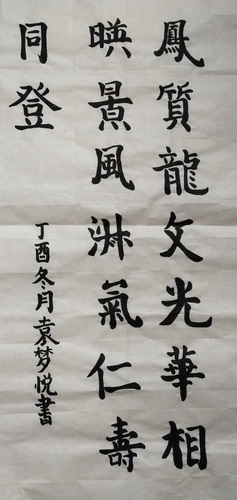 鳳質龍文光華相
暎景風淋氣仁壽
同登
丁酉冬月袁梦悦書